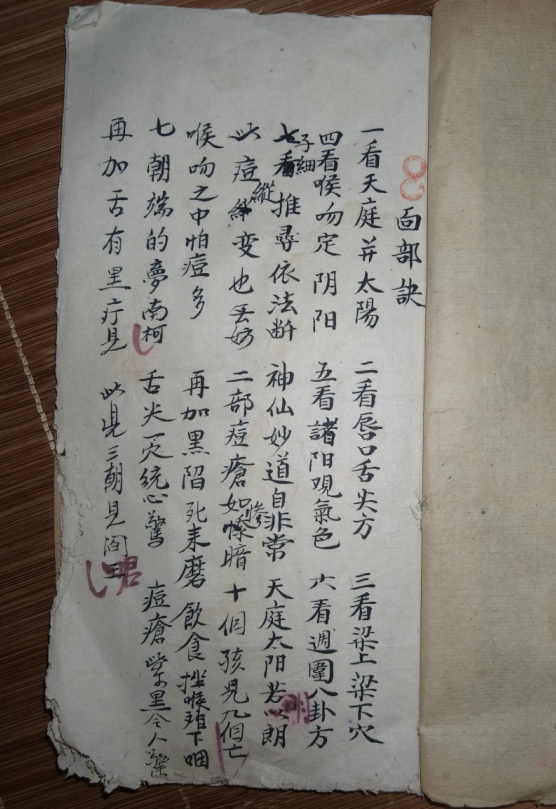 面部訣
一看天庭并太陽 二看唇口舌尖方 三看梁上梁下穴
四看喉吻定阴阳 五看諸阳观氣色 六看週圍八卦方
七看子細推尋依法断 神仙妙道自非常 天庭太阳若明朗
此痘縱变也无妨 二部痘瘡如惨暗 十個孩兒九個亡
喉吻之中怕痘多 再加黑陷死来磨 飲食挫喉难下咽
七朝端的夢南柯 舌尖一穴統心 痘瘡紫黑令人
再加舌有黑疔見 此児三朝見阎君